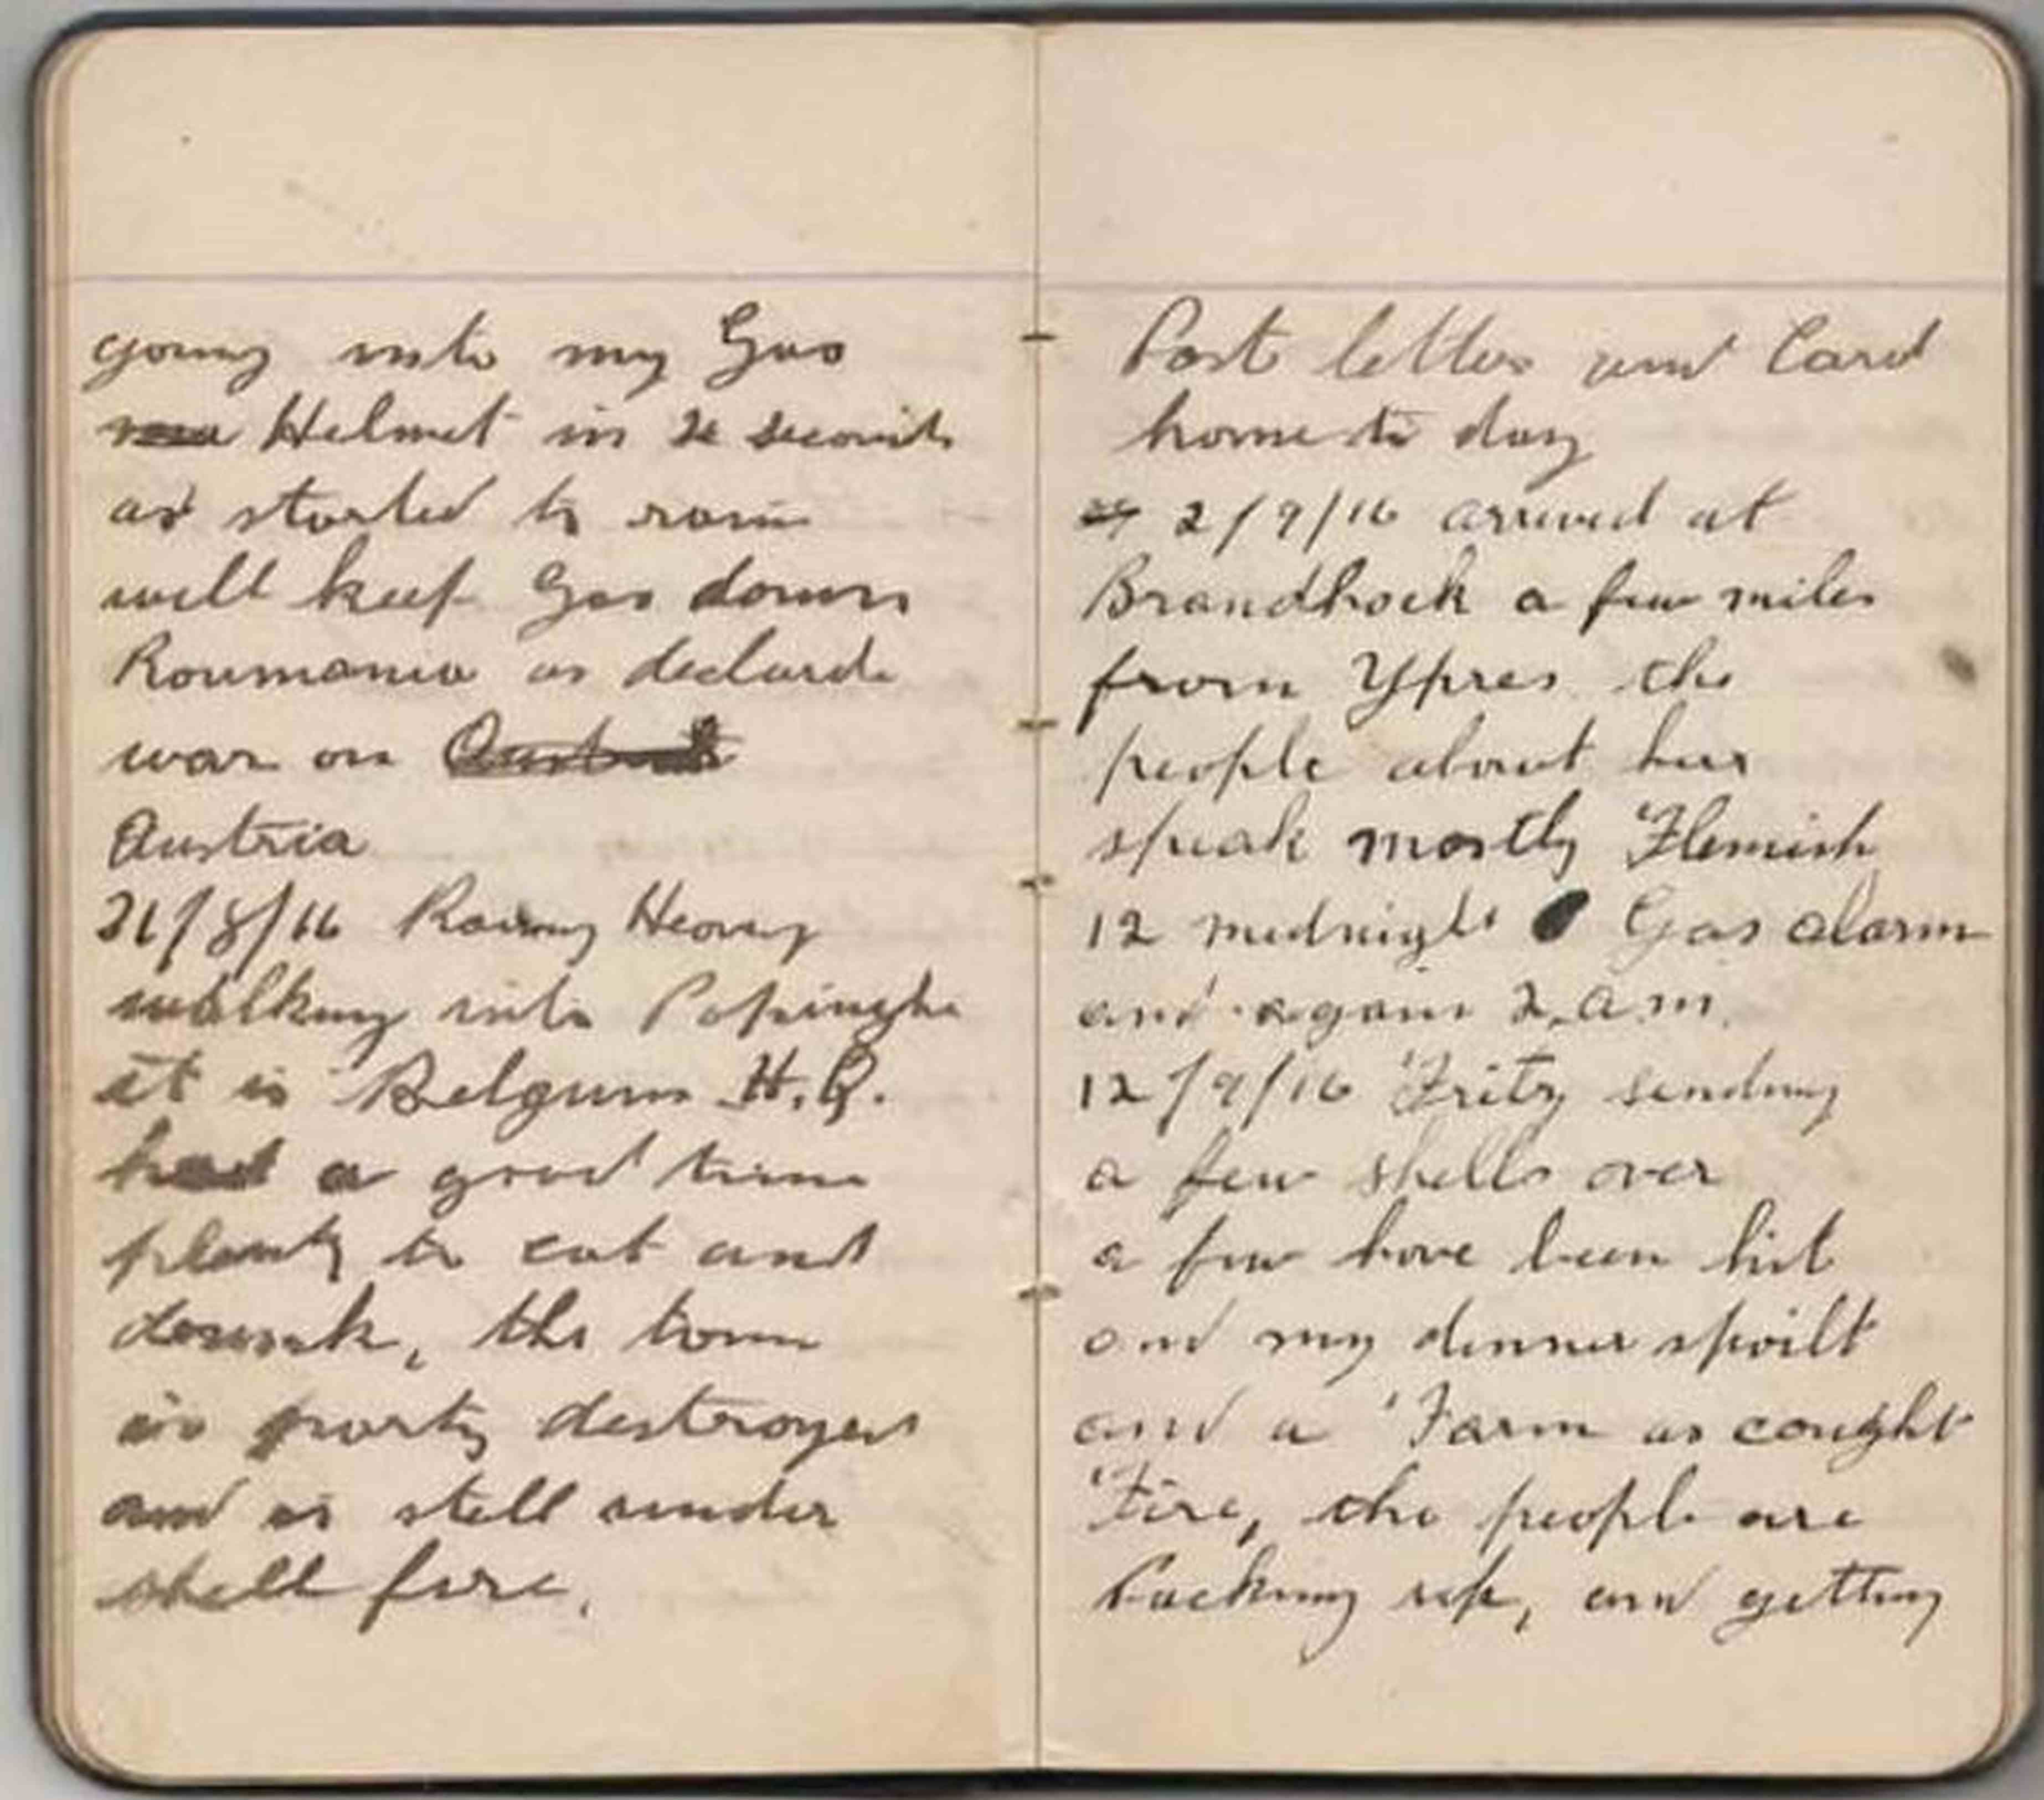 going into my Gas
Helmet in seconds
as started to rain
will keep Gas down
Roumania as declard
war on
Austria
31/8/16 Rainy Heavy
walking into Popinghe
it is Belgum H.Q.
had a good time
plenty to eat and
drink, the town
is party destroyed
and is still under
shell fire.
Post letter and Card
home to day
2/9/16 arrived at
Brandhoek a few miles
from Ypres the
people about here
speak mostly Flemish
12 midnight Gas alarm
and again 2.a.m.
12/9/16 Fritz sending
a few shells over
a few have been hit
and my dinner spoilt
and a Farm as cought
Fire, the people are
Packing up, and getting